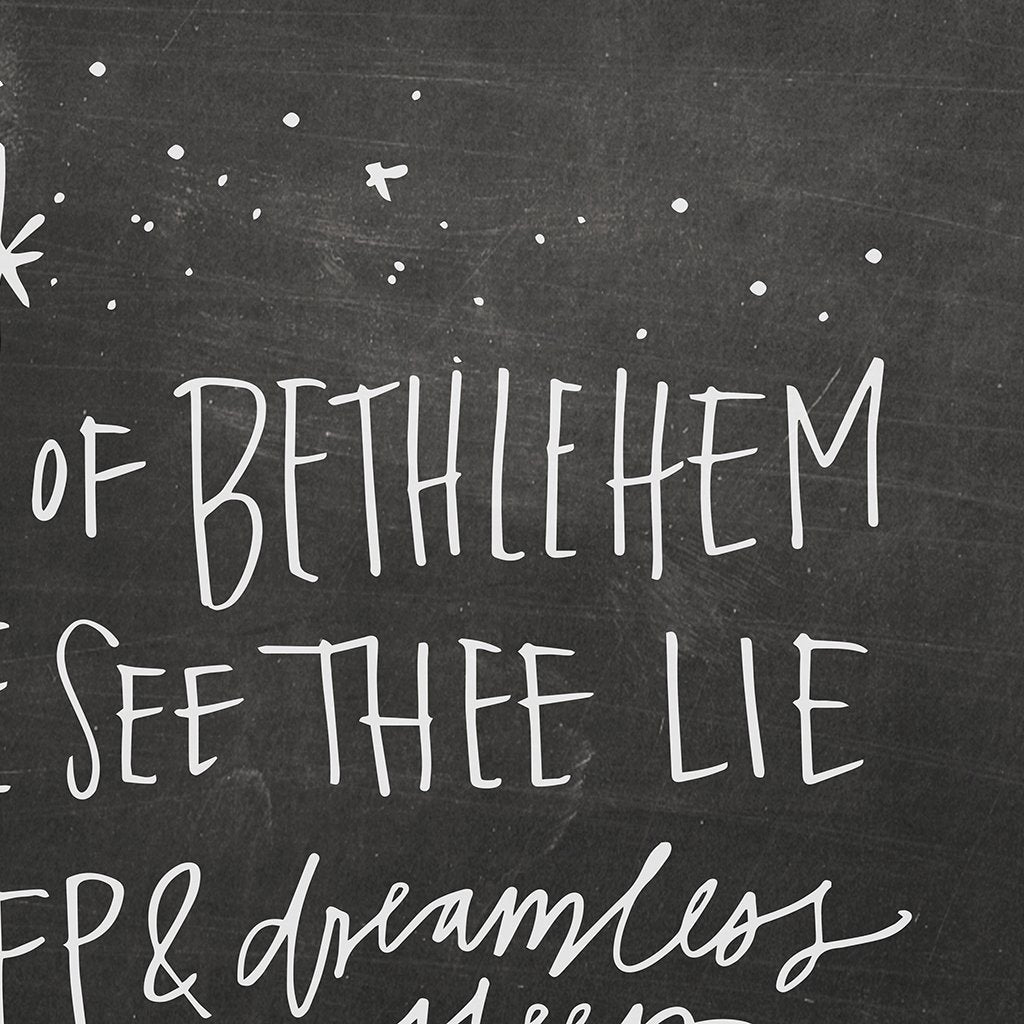 OF BETHLEHEM
E SEE THEE LIE
EP & dreamless
sleep